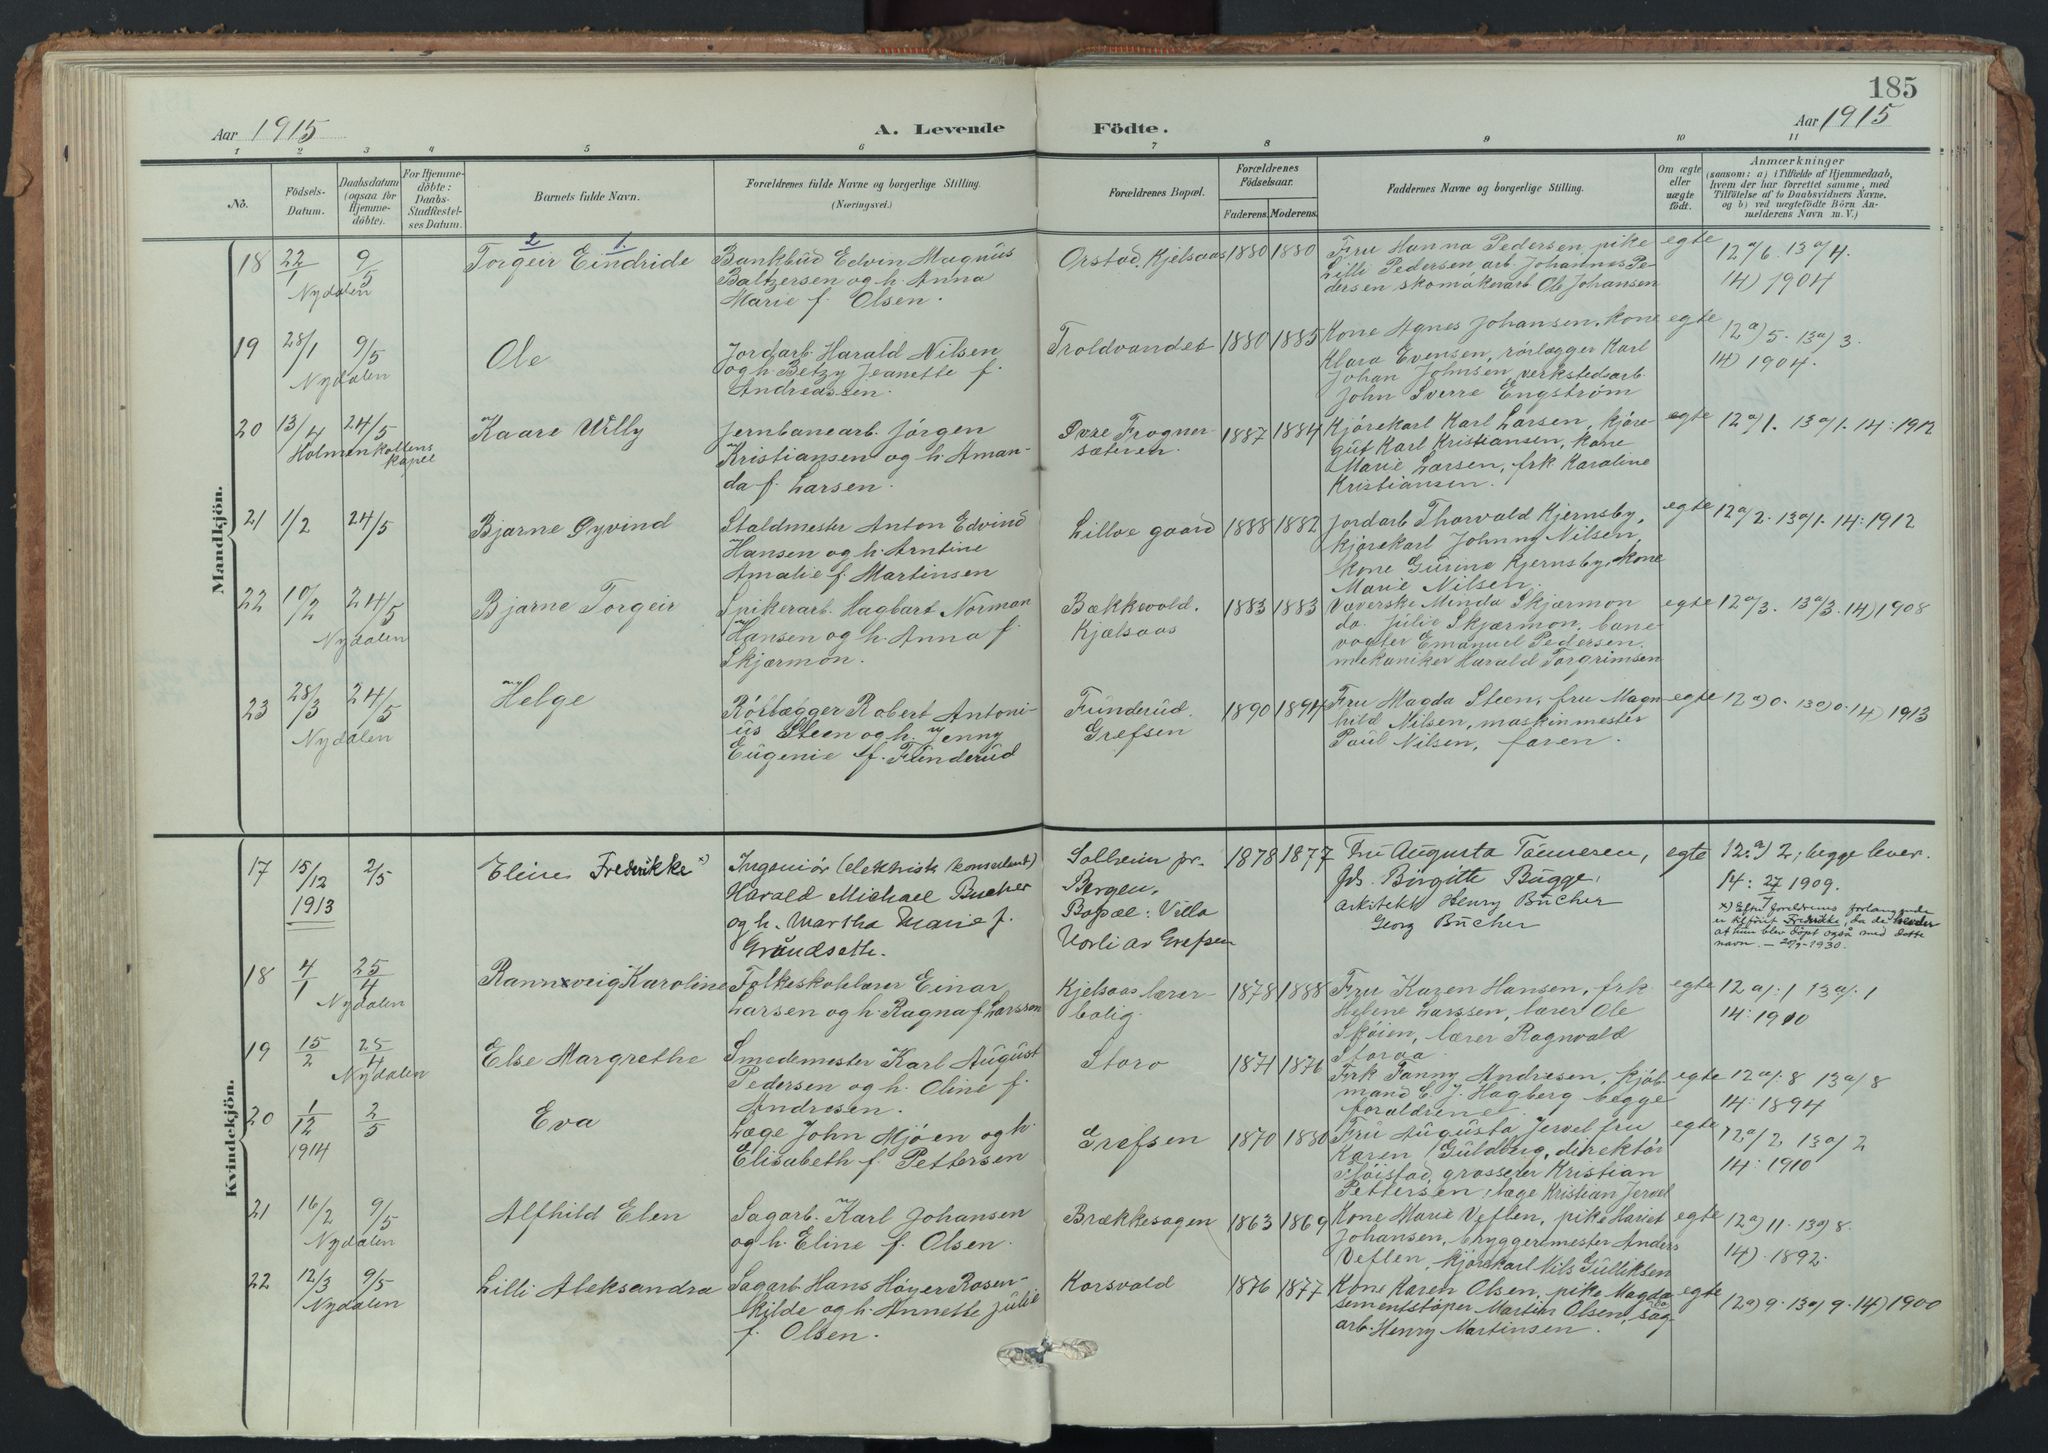 185
Aar 1915
A. Levende
Födte.
Aar 1915
1 2 3 4 5 6 7 8 9 10 11
No.
Födsels-
Datum.
Daabsdatum
(ogsaa for
Hjemme-
döbte).
For Hjemme-
döbte:
Daabs-
Stadfæstel-
ses Datum.
Barnets fulde Navn.
Forældrenes fulde Navne og borgerlige Stilling.
(Næringsvei.)
Forældrenes Bopæl.
Forældrenes
Födselsaar.
Faderens. Moderens.
Faddernes Navne og borgerlige Stilling.
Om ægte
eller
uægte
födt.
Anmærkninger
(saasom: a) i Tilfælde af Hjemmedaab,
hvem der har forrettet samme, med
Tilföielse af to Daabsvidners Navne,
og b) ved uægtefödte Börn An-
melderens Navn m. V.)
Mandkjön.
18 22/1 9/5
Nydalen
2 1.
Torgeir Eindride
Bankbud Edvin Magnus
Baltzersen og h. Anna
Marie f. Olsen.
Orstad. Kjelsaas
1880 1880
Fru Hanna Pedersen, pike
Lilli Pedersen arb. Johannes Pe-
dersen skomakerarb Ole Johansen
egte
12 a/6. 13 a/4.
14) 1904
19 28/1 9/5
Nydalen
Ole
Jordarb. Harald Nilsen
og h. Betzy Jeanette f.
Andreassen.
Troldvandet
1880 1885
Kone Agnes Johansen, kone
Klara Evensen, rörlægger Karl
Johan Johnsen, verkstedsarb.
John Sverre Engström
egte
12 a) 5. 13 a) 3.
14) 1904.
20 13/4 24/5
Holmenkollens
kapel
Kaare Willy
Jernbanearb. Jörgen
Kristiansen og h. Aman-
da f. Larsen.
Övre Frogner-
sæteren.
1887 1884
Kjörekarl Karl Larsen, kjöre-
gut Karl Kristiansen, kone
Marie Larsen, frk Karoline
Kristiansen.
egte
12 a/1. 13 a/1. 14: 1912
21 1/2 24/5
Bjarne Öyvind
Staldmester Anton Edvind
Hansen og h. Arntine
Amalie f. Martinsen
Lilloe gaard
1888 1882
Jordarb Thorvald Kjernsby,
kjörekarl Johnny Nilsen,
kone Gunne Kjernsby, kone
Marie Nilsen.
egte
12 a/2. 13 a/1. 14: 1912
22 10/2 24/5
Nydalen
Bjarne Torgeir
Spikerarb. Hagbart Norman
Hansen og h. Anna f.
Skjærmon.
Bækkevold.
Kjælsaas
1883 1883
Væverske Minda Skjærmon
do. Julie Skjærmon, bane-
vogter Emanuel Pedersen,
mekaniker Harald Torgrimsen
egte
12 a/3. 13 a/3. 14) 1908
23 28/3 24/5
Nydalen
Helge
Rörlægger Robert Antoni-
us Steen og h. Jenny
Eugenie f. Funderud
Funderud.
Grefsen
1890 1894
Fru Magda Steen, fru Magn
hild Nilsen, maskinmester
Paul Nilsen, faren.
egte
12 a) 0. 13 a) 0. 14) 1913
Kvindekjön.
17 15/12 1913 2/5
Eline Fredrikke x)
Ingeniör (elektrisk konsulent)
Harald Michael Bucher
og h. Martha Marie f.
Grundseth.
Solheim pr.
Bergen.
Bopæl: Villa
Vorli av Grefsen
1878 1877
Fru Augusta Tönnesen,
Birgitte Bugge,
arkitekt Henry Bucher
Georg Bucher
egte
12. a) 2, begge lever.
14: 27/7 1909.
x) Efter foreldrenes forlangende
er tilföiet Fredrikke, da de hevder
at hun blev döpt også med dette
navn. – 20/9-1930.
18 4/1 25/4
Nydalen
Rannveig Karoline
Folkeskolelærer Einar
Larsen og h. Ragna f. Larsson
Kjelsaas lærer-
bolig.
1878 1888
Fru Karen Hansen, frk
Helene Larssen, lærer Ole
Sköien, lærer Ragnvald
Storaa.
egte
12 a/. 1 13 a/. 1
14: 1910
19 15/2 25/4
Nydalen
Else Margrethe
Smedemester Karl August
Pedersen og h. Oline f.
Andresen.
Storo
1871 1876
Frk Fanny Andresen, kjöb-
mand E. J. Hagberg begge
forældrene.
egte
12 a/. 8 13 a/ 8
14: 1894
20 1/12 1914 2/5
Eva
Læge John Mjöen og h.
Elisabeth f. Pettersen
Grefsen
1870 1880
Fru Augusta Jervel fru
Karen Guldberg, direktör
Flöistad, grosserer Kristian
Pettersen, læge Kristian Jervel
egte
12 a/ 2, 13 a/ 2
14: 1910
21 16/2 9/5
Nydalen
Alfhild Elen
Sagarb. Karl Johansen
og h. Eline f. Olsen.
Brækkesagen
1863 1869
Kone Marie Veflen, pike Hariet
Johansen, bryggermester Anders
Veflen, kjörekarl Nils Gulliksen
egte
12 a) 11. 13 a) 8.
14) 1892.
22 12/3 9/5
Nydalen
Lilli Aleksandra
Sagarb. Hans Høyer Rosen-
skilde og h. Annette Julie
f. Olsen.
Korsvald
1876 1877
Kone Karen Olsen, pike Magda
sementstöper Martin Olsen, sag-
arb. Henry Martinsen.
egte
12 a) 9. 13 a) 9. 14) 1900